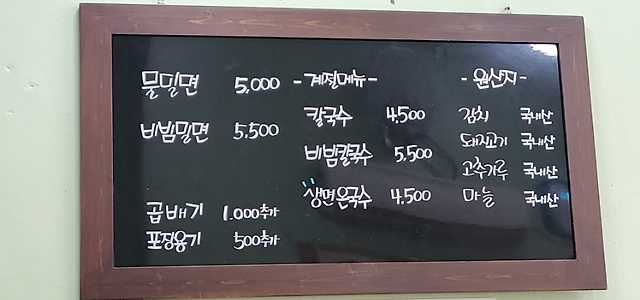 물밀면 5,000
비빔밀면 5,500
곱배기 1,000추가
포장용기 500추가
- 계절메뉴 -
칼국수 4,500
비빔칼국수 5,500
생면온국수 4,500
- 원산지 -
김치 국내산
돼지고기 국내산
고추가루 국내산
마늘 국내산